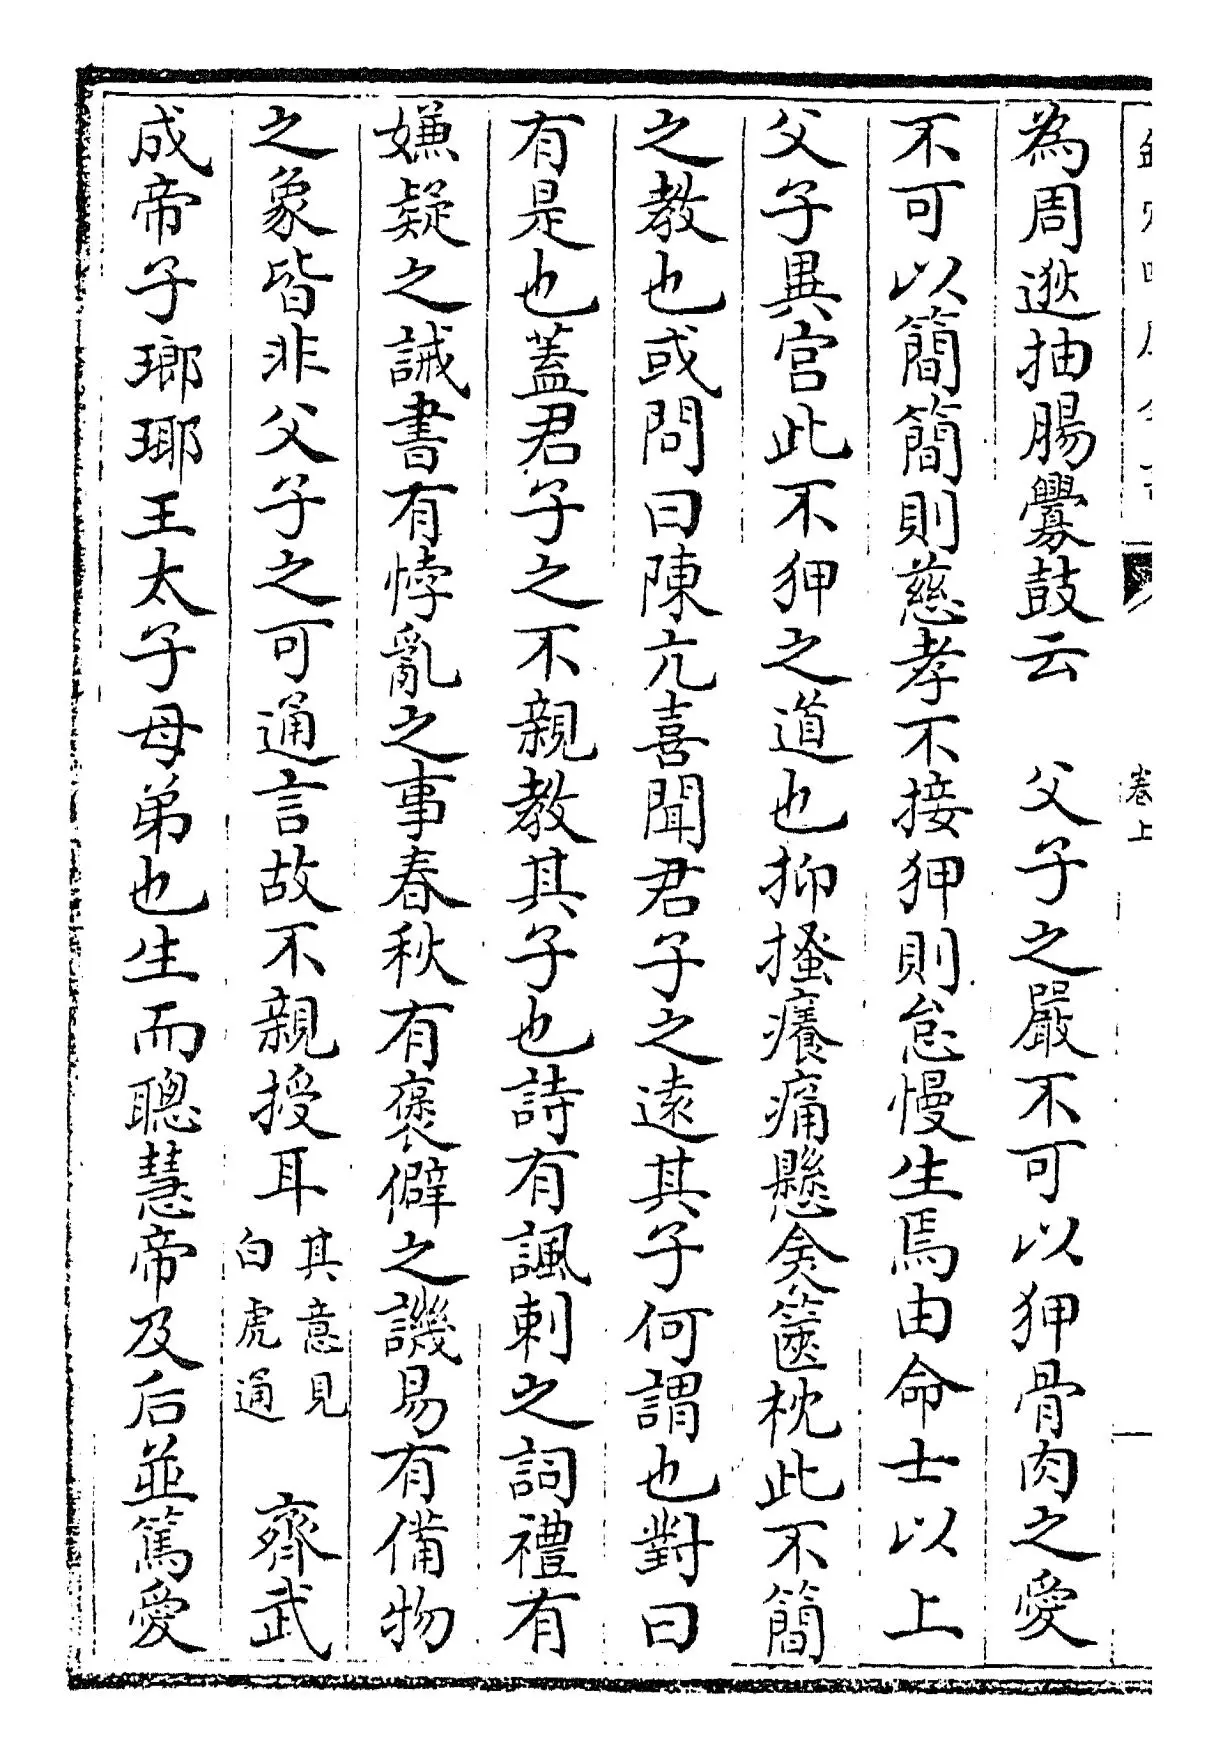 卷上
為周逖抽腸釁鼓云　父子之嚴不可以狎骨肉之愛
不可以簡簡則慈孝不接狎則怠慢生焉由命士以上
父子異宮此不狎之道也抑搔癢痛懸衾篋枕此不簡
之教也或問曰陳亢喜聞君子之遠其子何謂也對曰
有是也蓋君子之不親教其子也詩有諷刺之詞禮有
嫌疑之誡書有悖亂之事春秋有褒僻之譏易有備物
之象皆非父子之可通言故不親授耳其意見白虎通　齊武
成帝子瑯瑘王太子母弟也生而聰慧帝及后並篤愛